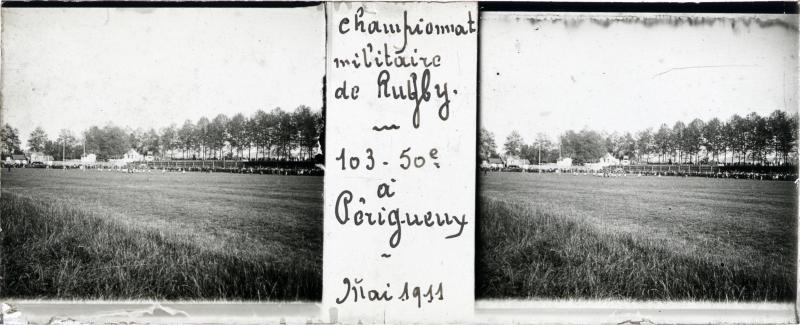 championnat
militaire
de Rugby.
103 - 50e
à
Périgueux
Mai 1911